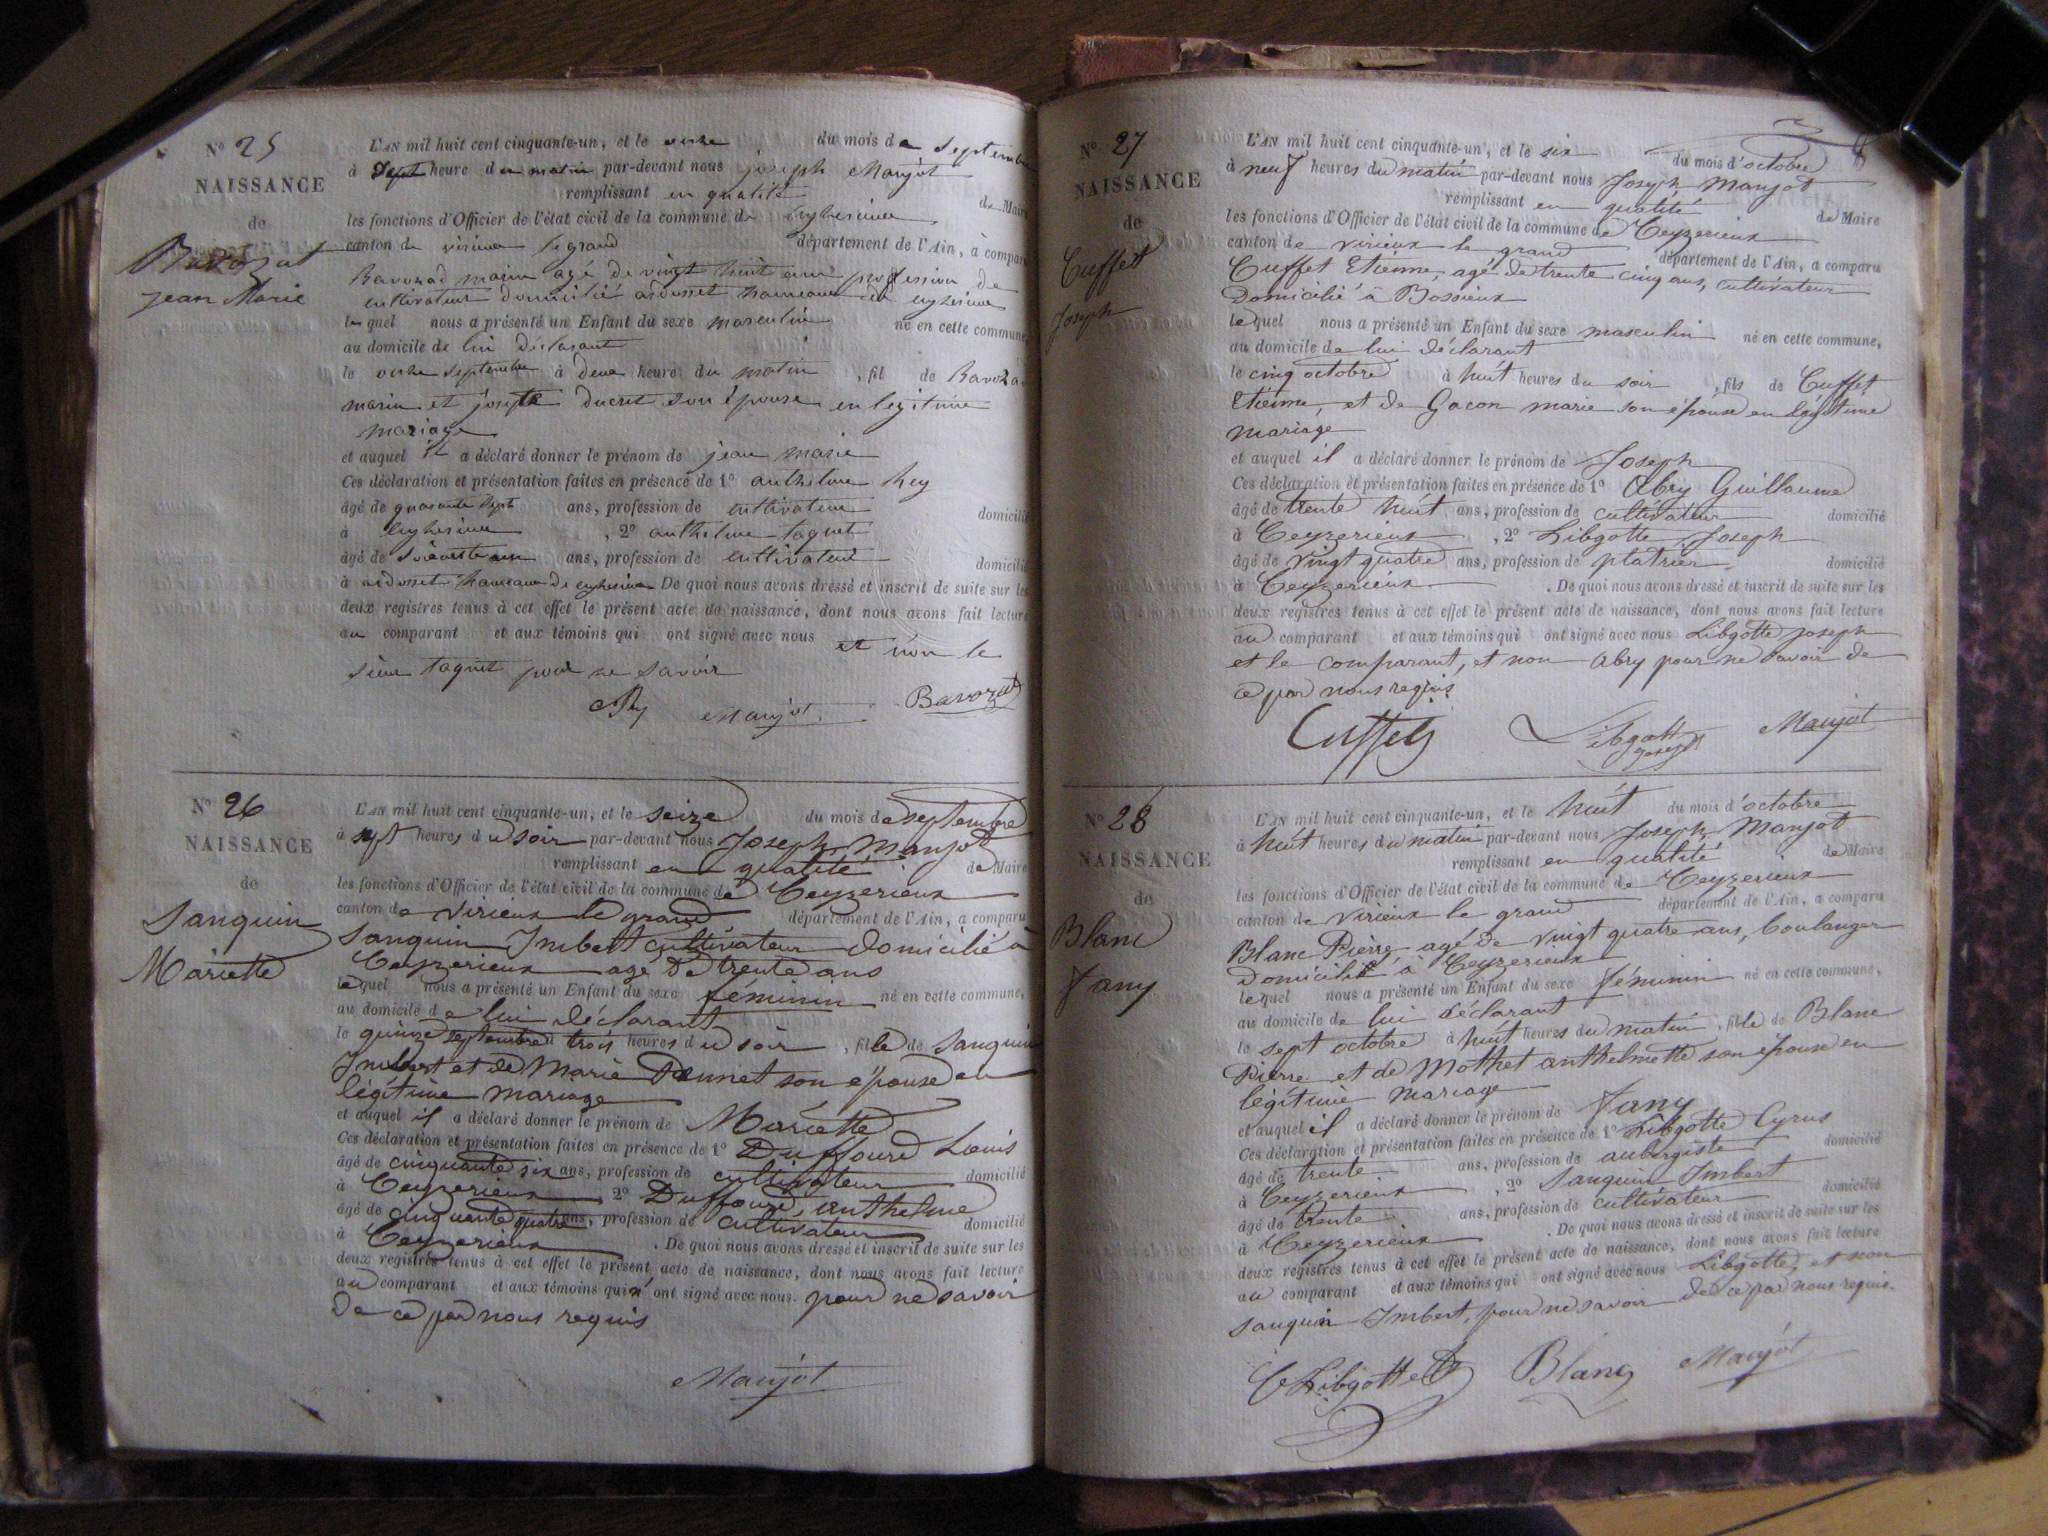 N° 25
NAISSANCE
de
Bavozat
jean Marie
L'AN mil huit cent cinquante-un, et le onze du mois de septembre
à sept heure du matin par-devant nous joseph Manjot
remplissant en qualité de Maire
les fonctions d'Officier de l'état civil de la commune de
canton de virieux le grand département de l'Ain, a comparu
Bavozad marin agé de vingt huit ans profession de
cultivateur domicilié ardosset hameau de
lequel nous a présenté un Enfant du sexe masculin né en cette commune,
au domicile de lui déclarant
le onze septembre à deux heure du matin, fil de Bavoza
marin et josepte ducret son épouse en legitime
mariage
et auquel il a déclaré donner le prénom de jean marie
Ces déclaration et présentation faites en présence de 1° anthelme Rey
âgé de quarante sept ans, profession de cultivateur domicilié
à , 2° anthelme taquet
âgé de ans, profession de cultivateur domicilié
à ardosset hameau de De quoi nous avons dressé et inscrit de suite sur les
deux registres tenus à cet effet le présent acte de naissance, dont nous avons fait lecture
au comparant et aux témoins qui ont signé avec nous et non le
sieur taquet pour ne savoir
Rey Manjot Bavozat
N° 26
NAISSANCE
de
Sanquin
Mariette
L'AN mil huit cent cinquante-un, et le seize du mois de septembre
à sept heures du soir par-devant nous Joseph Manjot
remplissant en qualité de Maire
les fonctions d'Officier de l'état civil de la commune de Ceyzerieux
canton de virieux le grand département de l'Ain, a comparu
Sanquin Imbert cultivateur domicilié à
Ceyzerieux agé de trente ans
lequel nous a présenté un Enfant du sexe féminin né en cette commune,
au domicile de lui déclarant
le quinze septembre à trois heures du soir, fille de Sanquin
Imbert et de Marie son épouse en
légitime mariage
et auquel il a déclaré donner le prénom de Mariette
Ces déclaration et présentation faites en présence de 1° Duffourd Louis
âgé de cinquante six ans, profession de cultivateur domicilié
à Ceyzerieux 2° Duffourd, anthelme
âgé de cinquante quatre ans, profession de cultivateur domicilié
à Ceyzerieux . De quoi nous avons dressé et inscrit de suite sur les
deux registres tenus à cet effet le présent acte de naissance, dont nous avons fait lecture
au comparant et aux témoins qui n' ont signé avec nous. pour ne savoir
de ce par nous requis
Manjot
N° 27
NAISSANCE
de
Cuffet
Joseph
L'AN mil huit cent cinquante-un, et le six du mois d'octobre
à neuf heures du matin par-devant nous Joseph Manjot
remplissant en qualité de Maire
les fonctions d'Officier de l'état civil de la commune de Ceyzerieux
canton de virieux le grand département de l'Ain, a comparu
Cuffet Etienne, agé de trente cinq ans, cultivateur
Domicilié à Bossieux
lequel nous a présenté un Enfant du sexe masculin né en cette commune,
au domicile de lui déclarant
le cinq octobre à huit heures du soir, fils de Cuffet
Etienne, et de Gacon marie son épouse en légitime
mariage
et auquel il a déclaré donner le prénom de Joseph
Ces déclaration et présentation faites en présence de 1° Abry Guillaume
âgé de trente huit ans, profession de cultivateur domicilié
à Ceyzerieux , 2° Libgotte, Joseph
âgé de vingt quatre ans, profession de platrier domicilié
à Ceyzerieux . De quoi nous avons dressé et inscrit de suite sur les
deux registres tenus à cet effet le présent acte de naissance, dont nous avons fait lecture
au comparant et aux témoins qui ont signé avec nous Libgotte joseph
et le comparant, et non Abry pour ne savoir de
ce par nous requis
Cuffet Libgott joseph Manjot
N° 28
NAISSANCE
de
Blanc
fany
L'AN mil huit cent cinquante-un, et le huit du mois d'octobre
à huit heures du matin par-devant nous Joseph Manjot
remplissant en qualité de Maire
les fonctions d'Officier de l'état civil de la commune de Ceyzerieux
canton de virieux le grand département de l'Ain, a comparu
Blanc Pierre, agé de vingt quatre ans, boulanger
domicilié à Ceyzerieux
lequel nous a présenté un Enfant du sexe féminin né en cette commune,
au domicile de lui déclarant
le sept octobre à huit heures du matin, fille de Blanc
Pierre et de Mothet anthelmette son épouse en
légitime mariage
et auquel il a déclaré donner le prénom de fany
Ces déclaration et présentation faites en présence de 1° Libgotte Cyrus
âgé de trente ans, profession de aubergiste domicilié
à Ceyzerieux , 2° Sanquin Imbert
âgé de trente ans, profession de cultivateur domicilié
à Ceyzerieux . De quoi nous avons dressé et inscrit de suite sur les
deux registres tenus à cet effet le présent acte de naissance, dont nous avons fait lecture
au comparant et aux témoins qui ont signé avec nous Libgotte, et non
sanquin Imbert, pour ne savoir de ce par nous requis.
C Libgotte Blanc Manjot